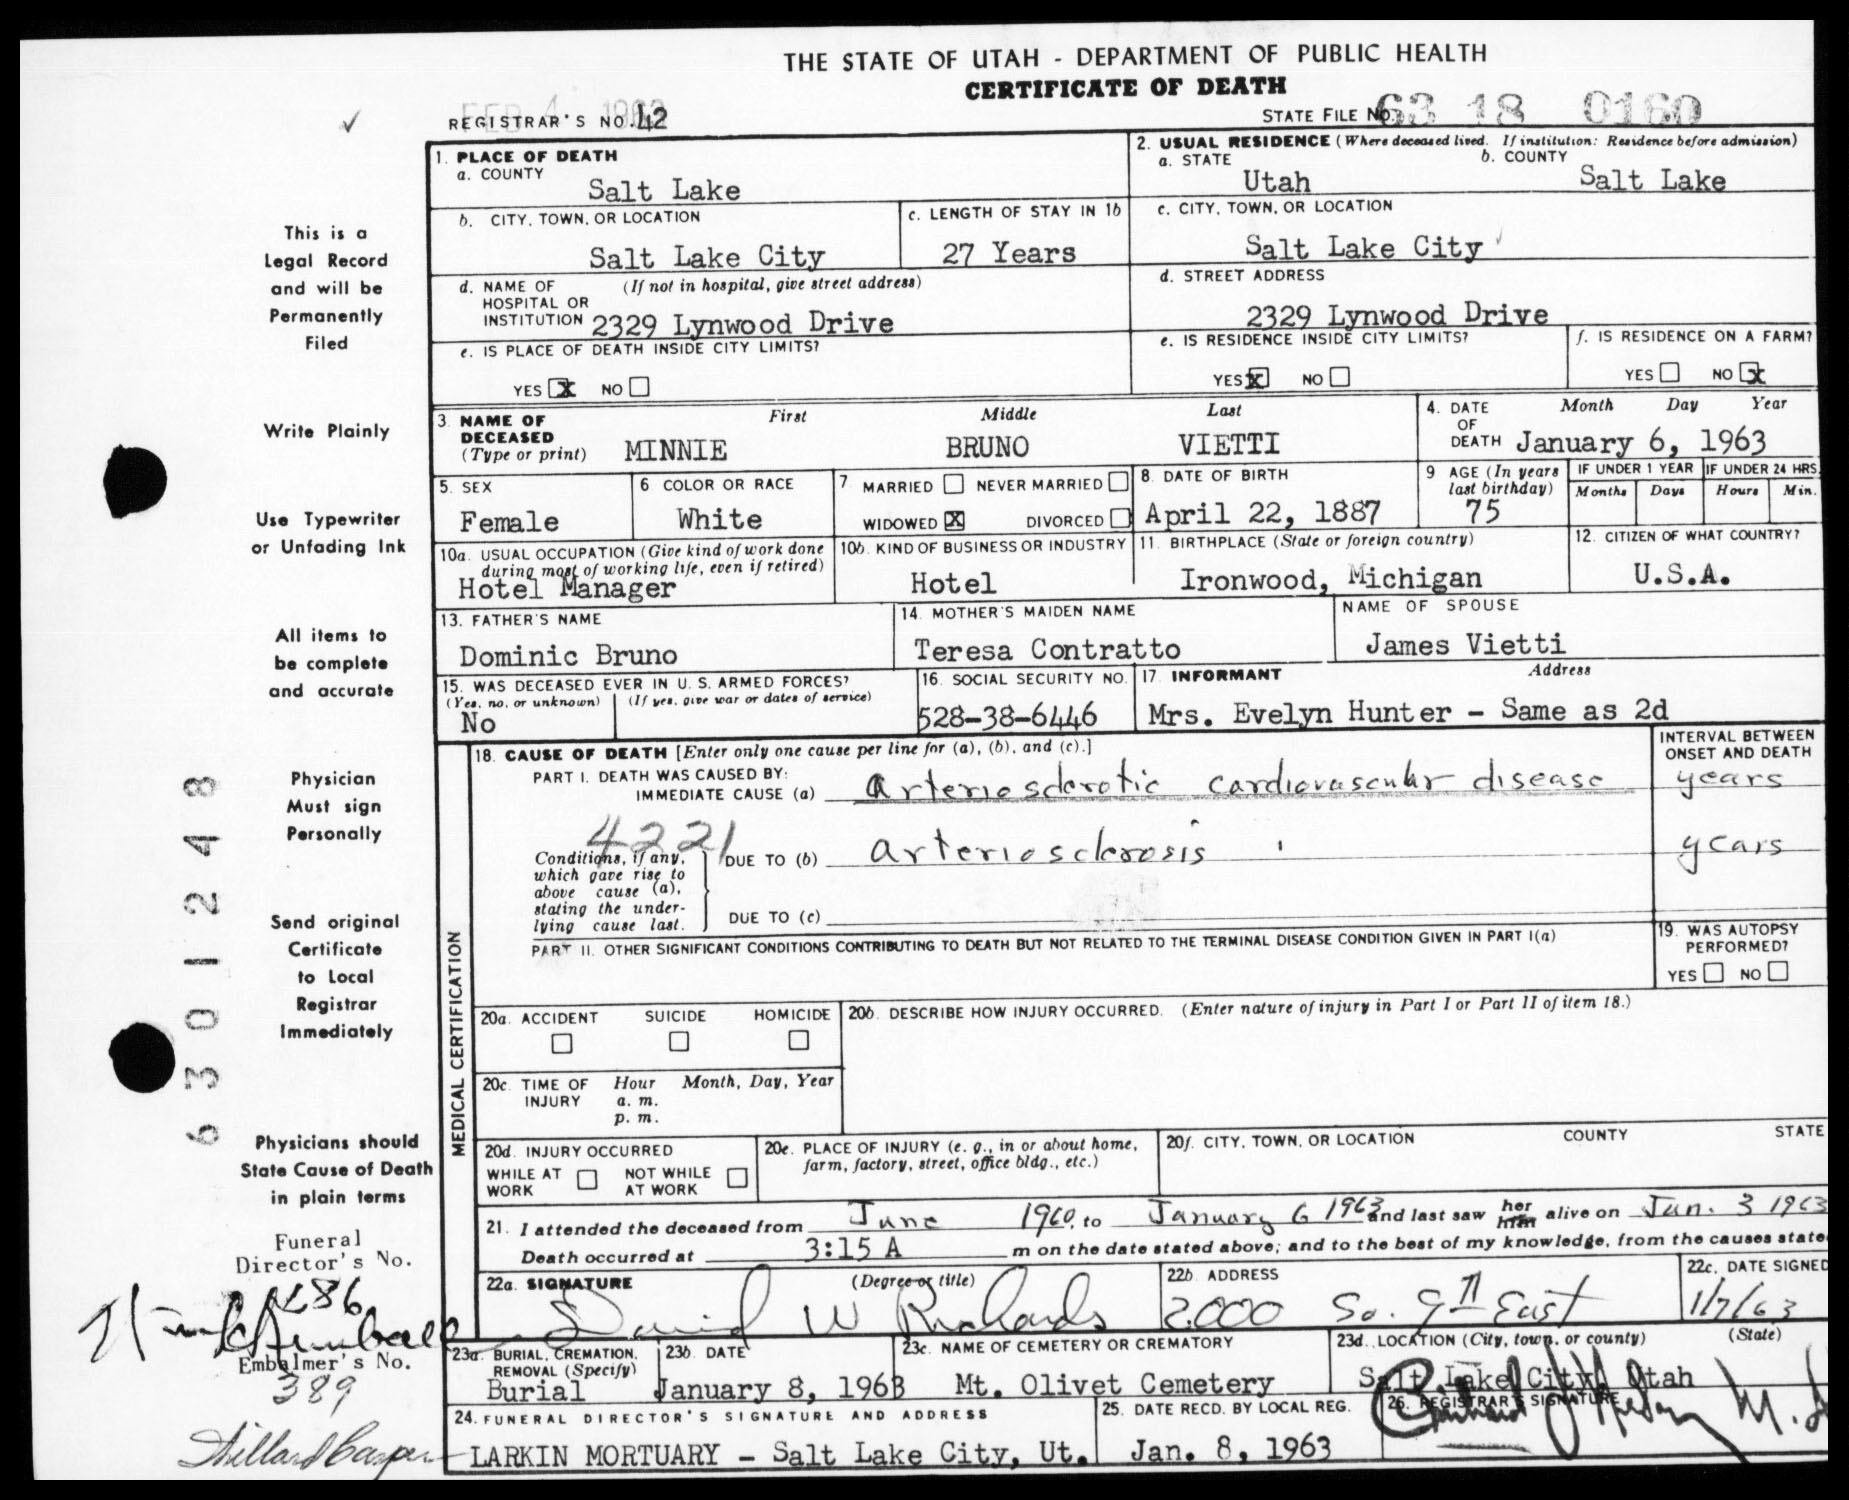 THE STATE OF UTAH - DEPARTMENT OF PUBLIC HEALTH
CERTIFICATE OF DEATH
FEB 4 1963
REGISTRAR'S NO. 42
STATE FILE NO. 63 18 0160
1. PLACE OF DEATH
a. COUNTY
Salt Lake
2. USUAL RESIDENCE (Where deceased lived. If institution: Residence before admission)
a. STATE
Utah
b. COUNTY
Salt Lake
b. CITY, TOWN, OR LOCATION
Salt Lake City
c. LENGTH OF STAY IN 1b
27 Years
c. CITY, TOWN, OR LOCATION
Salt Lake City
d. NAME OF HOSPITAL OR INSTITUTION (If not in hospital, give street address)
2329 Lynwood Drive
d. STREET ADDRESS
2329 Lynwood Drive
e. IS PLACE OF DEATH INSIDE CITY LIMITS?
YES X NO
e. IS RESIDENCE INSIDE CITY LIMITS?
YES X NO
f. IS RESIDENCE ON A FARM?
YES NO X
3. NAME OF DECEASED (Type or print)
First Middle Last
MINNIE BRUNO VIETTI
4. DATE OF DEATH Month Day Year
January 6, 1963
5. SEX
Female
6 COLOR OR RACE
White
7 MARRIED NEVER MARRIED
WIDOWED X DIVORCED
8. DATE OF BIRTH
April 22, 1887
9 AGE (In years last birthday)
75
IF UNDER 1 YEAR
Months Days
IF UNDER 24 HRS.
Hours Min.
10a. USUAL OCCUPATION (Give kind of work done during most of working life, even if retired)
Hotel Manager
10b. KIND OF BUSINESS OR INDUSTRY
Hotel
11. BIRTHPLACE (State or foreign country)
Ironwood, Michigan
12. CITIZEN OF WHAT COUNTRY?
U.S.A.
13. FATHER'S NAME
Dominic Bruno
14. MOTHER'S MAIDEN NAME
Teresa Contratto
NAME OF SPOUSE
James Vietti
15. WAS DECEASED EVER IN U. S. ARMED FORCES?
(Yes, no, or unknown) (If yes, give war or dates of service)
No
16. SOCIAL SECURITY NO.
528-38-6446
17. INFORMANT Address
Mrs. Evelyn Hunter - Same as 2d
MEDICAL CERTIFICATION
18. CAUSE OF DEATH [Enter only one cause per line for (a), (b), and (c).]
INTERVAL BETWEEN ONSET AND DEATH
PART I. DEATH WAS CAUSED BY:
IMMEDIATE CAUSE (a) Arteriosclerotic cardiovascular disease years
4221
Conditions, if any, which gave rise to above cause (a), stating the underlying cause last.
DUE TO (b) arteriosclerosis years
DUE TO (c)
PART II. OTHER SIGNIFICANT CONDITIONS CONTRIBUTING TO DEATH BUT NOT RELATED TO THE TERMINAL DISEASE CONDITION GIVEN IN PART I(a)
19. WAS AUTOPSY PERFORMED?
YES NO
20a. ACCIDENT SUICIDE HOMICIDE
20b. DESCRIBE HOW INJURY OCCURRED. (Enter nature of injury in Part I or Part II of item 18.)
20c. TIME OF INJURY Hour Month, Day, Year
a. m.
p. m.
20d. INJURY OCCURRED
WHILE AT WORK NOT WHILE AT WORK
20e. PLACE OF INJURY (e. g., in or about home, farm, factory, street, office bldg., etc.)
20f. CITY, TOWN, OR LOCATION COUNTY STATE
21. I attended the deceased from June 1960, to January 6 1963 and last saw her him alive on Jan. 3 1963
Death occurred at 3:15 A m on the date stated above; and to the best of my knowledge, from the causes state
22a. SIGNATURE (Degree or title)
David W Richards
22b ADDRESS
2000 So. 9th East
22c. DATE SIGNED
1/7/63
23a. BURIAL, CREMATION, REMOVAL (Specify)
Burial
23b. DATE
January 8, 1963
23c. NAME OF CEMETERY OR CREMATORY
Mt. Olivet Cemetery
23d. LOCATION (City, town, or county) (State)
Salt Lake City, Utah
24. FUNERAL DIRECTOR'S SIGNATURE AND ADDRESS
LARKIN MORTUARY - Salt Lake City, Ut.
25. DATE RECD. BY LOCAL REG.
Jan. 8, 1963
26. REGISTRAR'S SIGNATURE
This is a
Legal Record
and will be
Permanently
Filed
Write Plainly
Use Typewriter
or Unfading Ink
All items to
be complete
and accurate
Physician
Must sign
Personally
Send original
Certificate
to Local
Registrar
Immediately
Physicians should
State Cause of Death
in plain terms
6301248
Funeral
Director's No.
486
Embalmer's No.
389